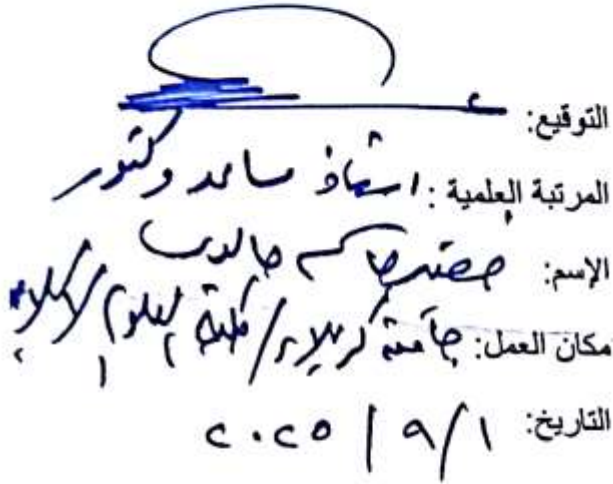 التوقيع:
المرتبة العلمية: استاذ مساعد دكتور
الإسم: جاسم
مكان العمل: جامعة كربلاء / كلية العلوم الاسلامية
التاريخ: ٢٠٢٥ / ٩ / ١